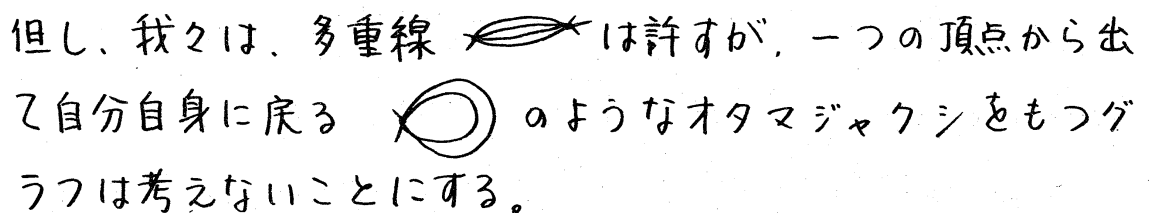 但し、我々は、多重線 は許すが、一つの頂点から出
て自分自身に戻る のようなオタマジャクシをもつグ
ラフは考えないことにする。